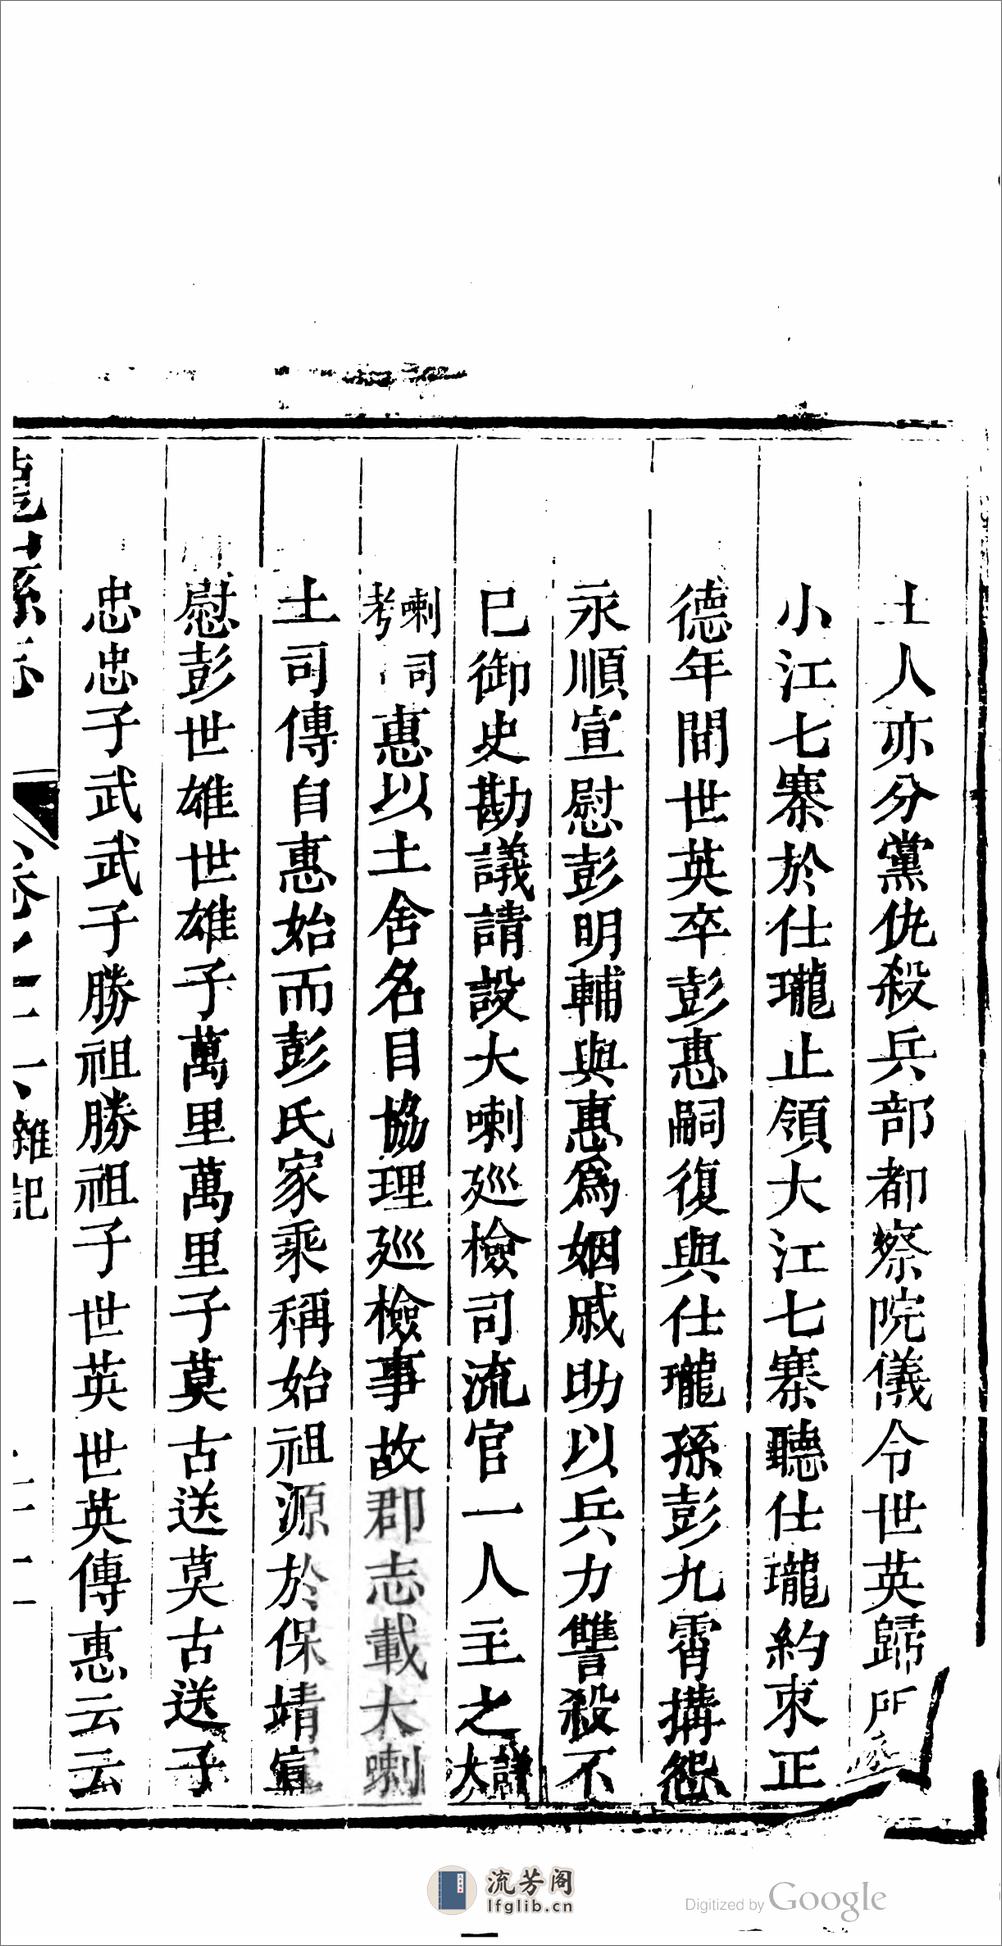 土人亦分黨仇殺兵部都察院儀令世英歸所
小江七寨於仕瓏止領大江七寨聽仕瓏約束正
德年間世英卒彭惠嗣復與仕瓏孫彭九霄搆怨
永順宣慰彭明輔與惠爲姻戚助以兵力讐殺不
已御史勘議請設大喇廵檢司流官一人主之詳大
喇司考惠以土舍名目協理廵檢事故郡志載大喇
土司傳自惠始而彭氏家乘稱始祖源於保靖宣
慰彭世雄世雄子萬里萬里子莫古送莫古送子
忠忠子武武子勝祖勝祖子世英世英傳惠云云
雜記
流芳阁
lfglib.cn
Digitized by Google